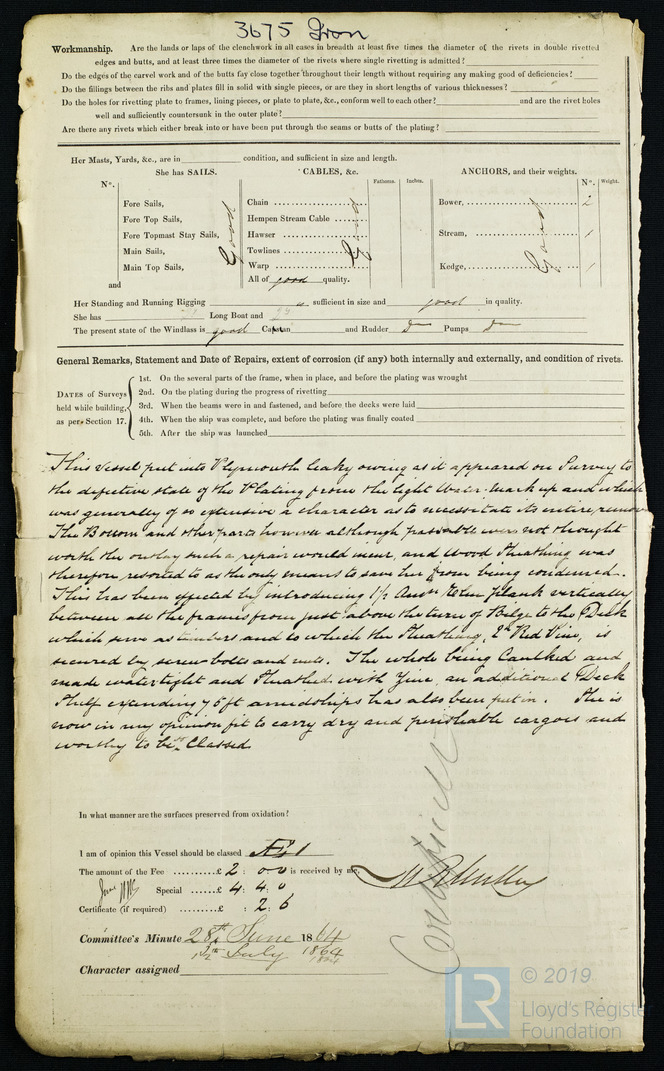 3675 Iron
Workmanship. Are the lands or laps of the clenchwork in all cases in breadth at least five times the diameter of the rivets in double rivetted
edges and butts, and at least three times the diameter of the rivets where single rivetting is admitted?
Do the edges of the carvel work and of the butts fay close together throughout their length without requiring any making good of deficiencies?
Do the fillings between the ribs and plates fill in solid with single pieces, or are they in short lengths of various thicknesses?
Do the holes for rivetting plate to frames, lining pieces, or plate to plate, &c., conform well to each other? and are the rivet holes
well and sufficiently countersunk in the outer plate?
Are there any rivets which either break into or have been put through the seams or butts of the plating?
Her Masts, Yards, &c., are in condition, and sufficient in size and length.
She has SAILS. CABLES, &c. Fathoms. Inches. ANCHORS, and their weights.
No. No. Weight.
Fore Sails, Chain Bower, 2
Fore Top Sails, Good Hempen Stream Cable Good
Fore Topmast Stay Sails, Hawser Stream, Good 1
Main Sails, Towlines
Main Top Sails, Warp Kedge, 1
and All of good quality.
Her Standing and Running Rigging sufficient in size and good in quality.
She has Long Boat and
The present state of the Windlass is good Capstan and Rudder Do Pumps Do
General Remarks, Statement and Date of Repairs, extent of corrosion (if any) both internally and externally, and condition of rivets.
DATES of Surveys held while building, as per Section 17.
1st. On the several parts of the frame, when in place, and before the plating was wrought
2nd. On the plating during the progress of rivetting
3rd. When the beams were in and fastened, and before the decks were laid
4th. When the ship was complete, and before the plating was finally coated
5th. After the ship was launched
This vessel put into Plymouth leaky owing as it appeared on Survey to
the defective state of the Plating from the light Water-mark up and which
was generally of so extensive a character as to necessitate its entire
The Bottom and other parts however although passable were not thought
worth the outlay such a repair would incur, and Wood Sheathing was
therefore resorted to as the only means to save her from being condemned.
This has been effected by introducing 1½ plank vertically
between all the frames from just above the turn of Bilge to the Deck
which serve as timbers and to which the Sheathing, 2" Red Pine, is
secured by screw bolts and nuts. The whole being Caulked and
made watertight and Sheathed with Zinc, an additional Deck
Shelf extending 76 ft amidships has also been put in. She is
now in my opinion fit to carry dry and perishable cargoes and
worthy to be Classed
In what manner are the surfaces preserved from oxidation?
I am of opinion this Vessel should be classed A 1
The amount of the Fee £ 2 : 0 : 0 is received by me,
Special £ 4 : 4 : 0
Certificate (if required) £ : 2 : 6
Committee's Minute 28th June 1864
July 1864
Character assigned
LR © 2019
Lloyd's Register
Foundation